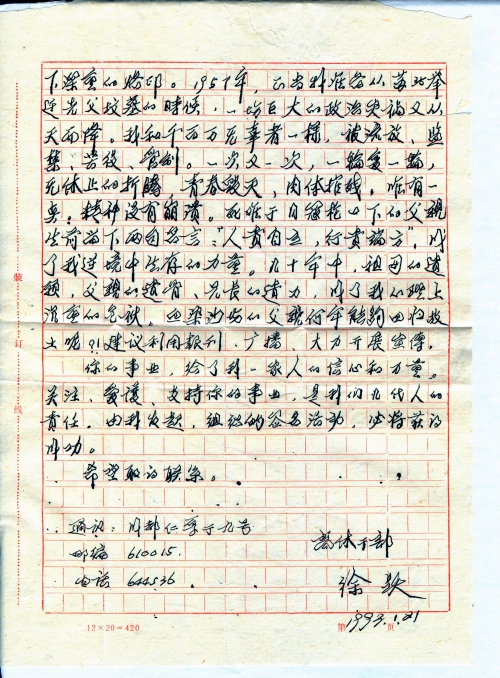 下深重的烙印。1957年，正当我准备从苏北举
迁先父坟墓的时候，一场巨大的政治灾祸又从
天而降。我和千百万无辜者一样，被流放、监
禁、苦役、管制。一次又一次，一轮复一轮，
无休止的折腾，青春毁灭，肉体摧残，唯有一
点，精神没有崩溃。死难于日
生前留下两句名言："人贵自立，行贵端方"，成
了我逆境中生存的力量。几十年中，祖母的遗
愿，父亲的遗
沉重的负
土呢？！建议利用报刊、广播，大力开展宣传。
你们的事业，给了我一家人的信心和力量。
关注、爱护、支持你们的事业，是我们几代人的
责任。由我发起，组织的签名活动，必将获得
成功。
希望取得联系。
通讯：成都
邮编 610015
电话 644536
离休干部
徐
1993.1.21
装
订
线
12×20=420
第 页